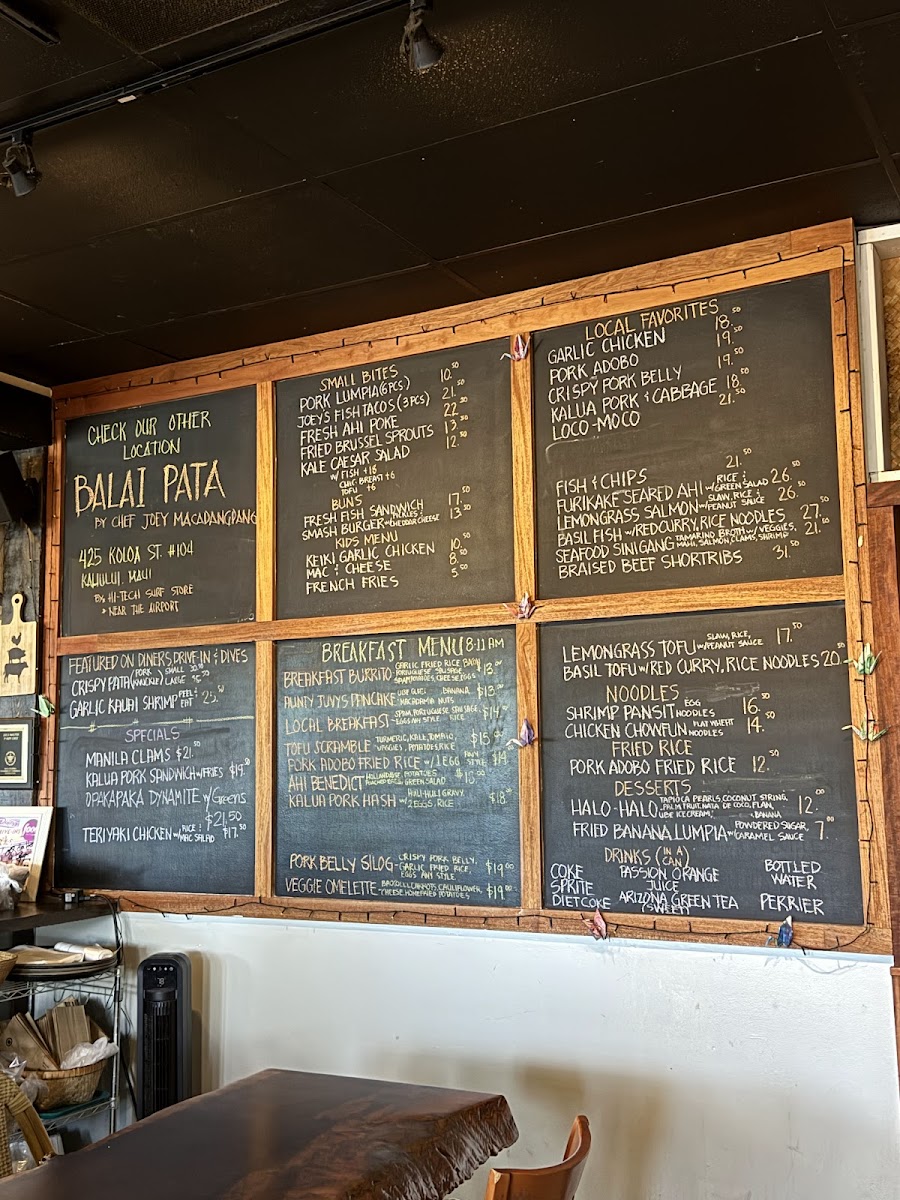 CHECK OUR OTHER
LOCATION
BALAI PATA
BY CHEF JOEY MACADANGDANG
425 KOLOA ST. #104
KAHULUI, MAUI
BY HI-TECH SURF STORE
* NEAR THE AIRPORT
SMALL BITES
PORK LUMPIA (6 PCS) 10.50
JOEY'S FISH TACOS (3 PCS) 21.50
FRESH AHI POKE 22.50
FRIED BRUSSEL SPROUTS 13.50
KALE CAESAR SALAD 12.50
W/ FISH +18
CHIC BREAST +6
TOFU +6
BUNS
FRESH FISH SANDWICH 17.50
SMASH BURGER W/ PICKLES, CHEDDAR CHEESE 13.50
KIDS MENU
KEIKI GARLIC CHICKEN 10.50
MAC & CHEESE 8.50
FRENCH FRIES 5.50
LOCAL FAVORITES
GARLIC CHICKEN 18.50
PORK ADOBO 19.50
CRISPY PORK BELLY 19.50
KALUA PORK & CABBAGE 18.50
LOCO-MOCO 21.50
FISH & CHIPS 21.50
FURIKAKE SEARED AHI W/ RICE & GREEN SALAD 26.50
LEMONGRASS SALMON W/ SLAW, RICE & PEANUT SAUCE 26.50
BASIL FISH W/ RED CURRY, RICE NOODLES 27.50
SEAFOOD SINIGANG TAMARIND BROTH W/ VEGGIES, MAHI, SALMON, CLAMS, SHRIMP 21.50
BRAISED BEEF SHORTRIBS 31.50
FEATURED ON DINERS, DRIVE-IN & DIVES
CRISPY PATA (PORK KNUCKLE) SMALL LARGE
GARLIC KAUAI SHRIMP PEEL & EAT 25.50
SPECIALS
MANILA CLAMS $21.50
KALUA PORK SANDWICH W/ FRIES $19.50
OPAKAPAKA DYNAMITE W/ Greens
$21.50
TERIYAKI CHICKEN W/ RICE & MAC SALAD $17.50
BREAKFAST MENU 8-11 AM
BREAKFAST BURRITO - GARLIC FRIED RICE, BACON, PORTUGUESE SAUSAGE, CHEESE, EGGS $18.00
AUNTY JUVY'S PANCAKE BANANA, MACADAMIA NUTS $13.00
LOCAL BREAKFAST - SPAM, PORTUGUESE SAUSAGE, EGGS ANY STYLE, RICE $14.00
TOFU SCRAMBLE - TURMERIC, KALE, TOMATO, VEGGIES, POTATOES, RICE $15.00
PORK ADOBO FRIED RICE W/ 1 EGG ANY STYLE $14
AHI BENEDICT HOLLANDAISE, POTATOES, POACHED EGGS, GREEN SALAD
KALUA PORK HASH W/ HULI-HULI GRAVY, 2 EGGS, RICE $18.00
PORK BELLY SILOG - CRISPY PORK BELLY, GARLIC FRIED RICE, EGGS ANY STYLE $19.00
VEGGIE OMELETTE - BROCOLI, CARROTS, CAULIFLOWER, CHEESE, HOMEFRIED POTATOES $19.00
LEMONGRASS TOFU W/ SLAW, RICE, PEANUT SAUCE 17.50
BASIL TOFU W/ RED CURRY, RICE NOODLES 20.50
NOODLES
SHRIMP PANSIT EGG NOODLES 16.50
CHICKEN CHOWFUN FLAT WHEAT NOODLES 14.50
FRIED RICE
PORK ADOBO FRIED RICE 12.50
DESSERTS
HALO-HALO TAPIOCA PEARLS, COCONUT STRING, PALM FRUIT, NATA DE COCO, FLAN, UBE ICE CREAM, BANANA 12.00
FRIED BANANA LUMPIA W/ POWDERED SUGAR, CARAMEL SAUCE 7.00
DRINKS (IN A CAN)
COKE
SPRITE
DIET COKE
PASSION ORANGE
JUICE
ARIZONA GREEN TEA
(SWEET)
BOTTLED
WATER
PERRIER